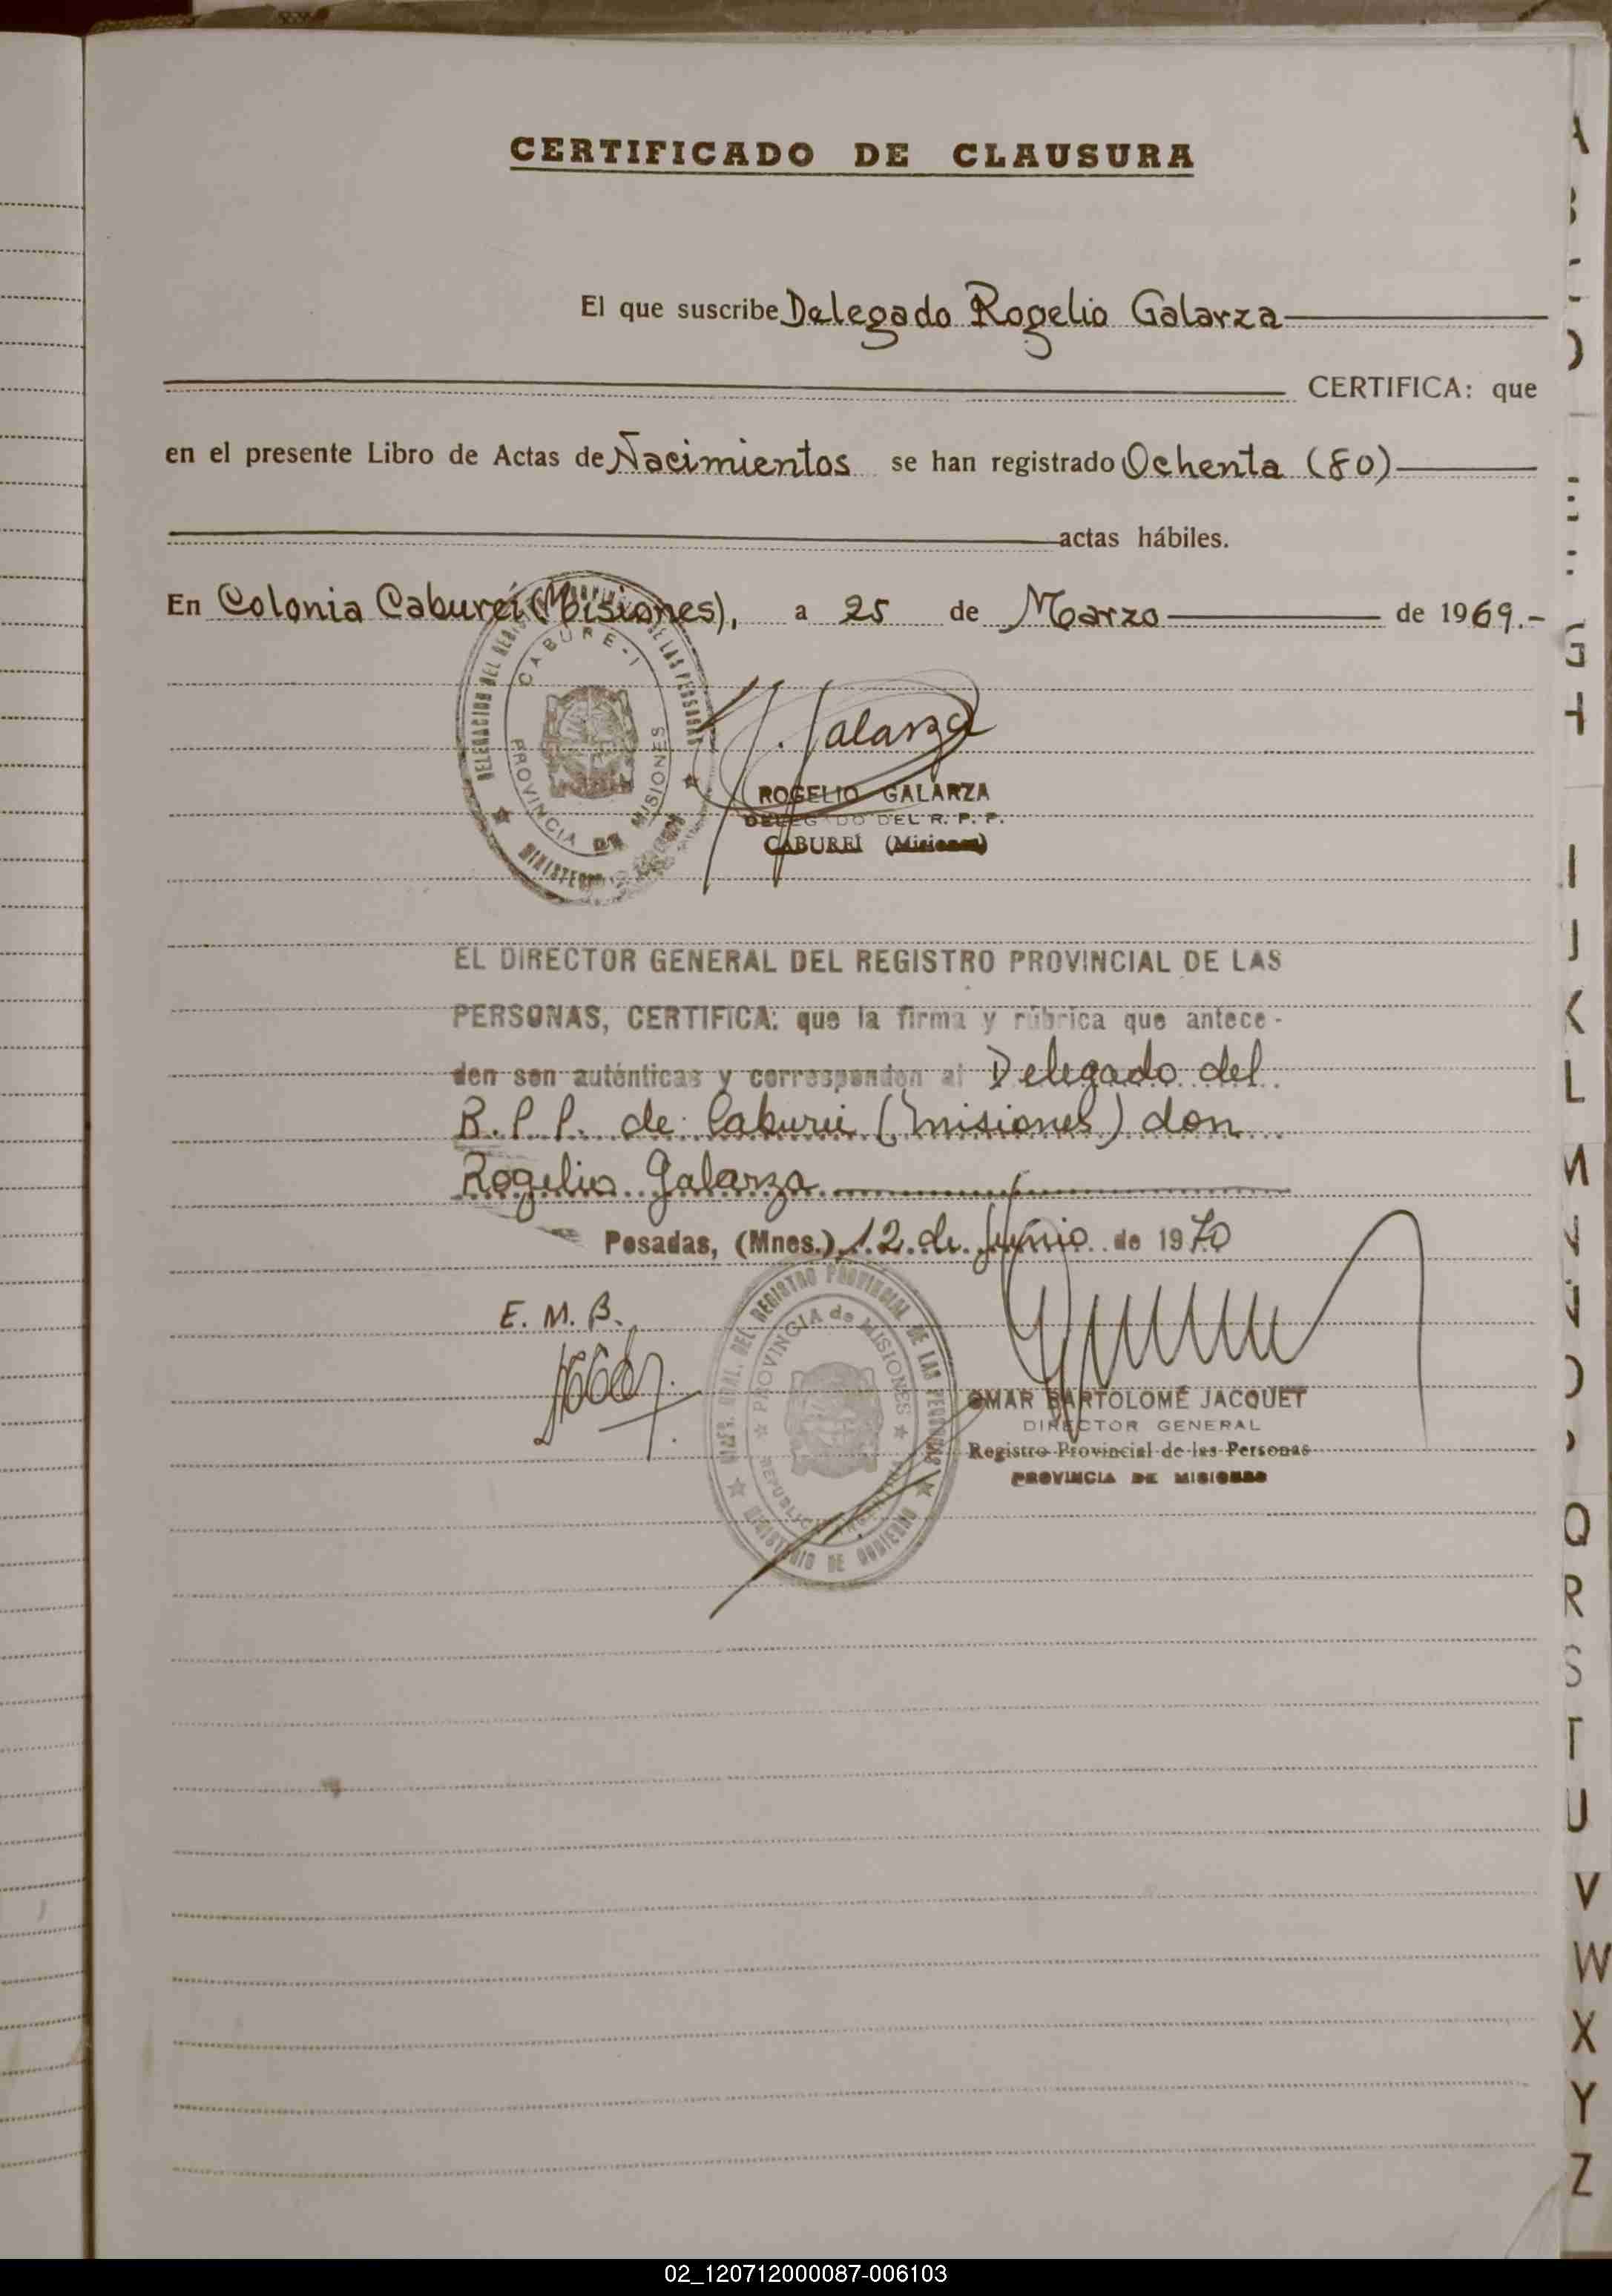 CERTIFICADO DE CLAUSURA
El que suscribe Delegado Rogelio Galarza
CERTIFICA: que
en el presente Libro de Actas de Nacimientos se han registrado Ochenta (80)
actas hábiles.
En Colonia Cabureí (Misiones), a 25 de Marzo de 1969.-
DELEGACION DEL REGISTRO PROVINCIAL DE LAS PERSONAS
CABURE-I
PROVINCIA DE MISIONES
MINISTERIO
Galarza
ROGELIO GALARZA
DELEGADO DEL R. P. P.
CABUREÍ (Misiones)
EL DIRECTOR GENERAL DEL REGISTRO PROVINCIAL DE LAS
PERSONAS, CERTIFICA: que la firma y rúbrica que antece-
den son auténticas y corresponden al Delegado del
R.P.P. de Cabureí (Misiones) don
Rogelio Galarza
Posadas, (Mnes.) 12 de Junio de 1970
E. M. B.
DIREC. GRAL. DEL REGISTRO PROVINCIAL DE LAS PERSONAS
PROVINCIA de MISIONES
REPUBLICA ARGENTINA
MINISTERIO DE GOBIERNO
OMAR BARTOLOMÉ JACQUET
DIRECTOR GENERAL
Registro Provincial de las Personas
PROVINCIA DE MISIONES
A
B
D
G
I
J
K
L
M
O
Q
R
S
T
U
V
W
X
Y
Z
02_120712000087-006103